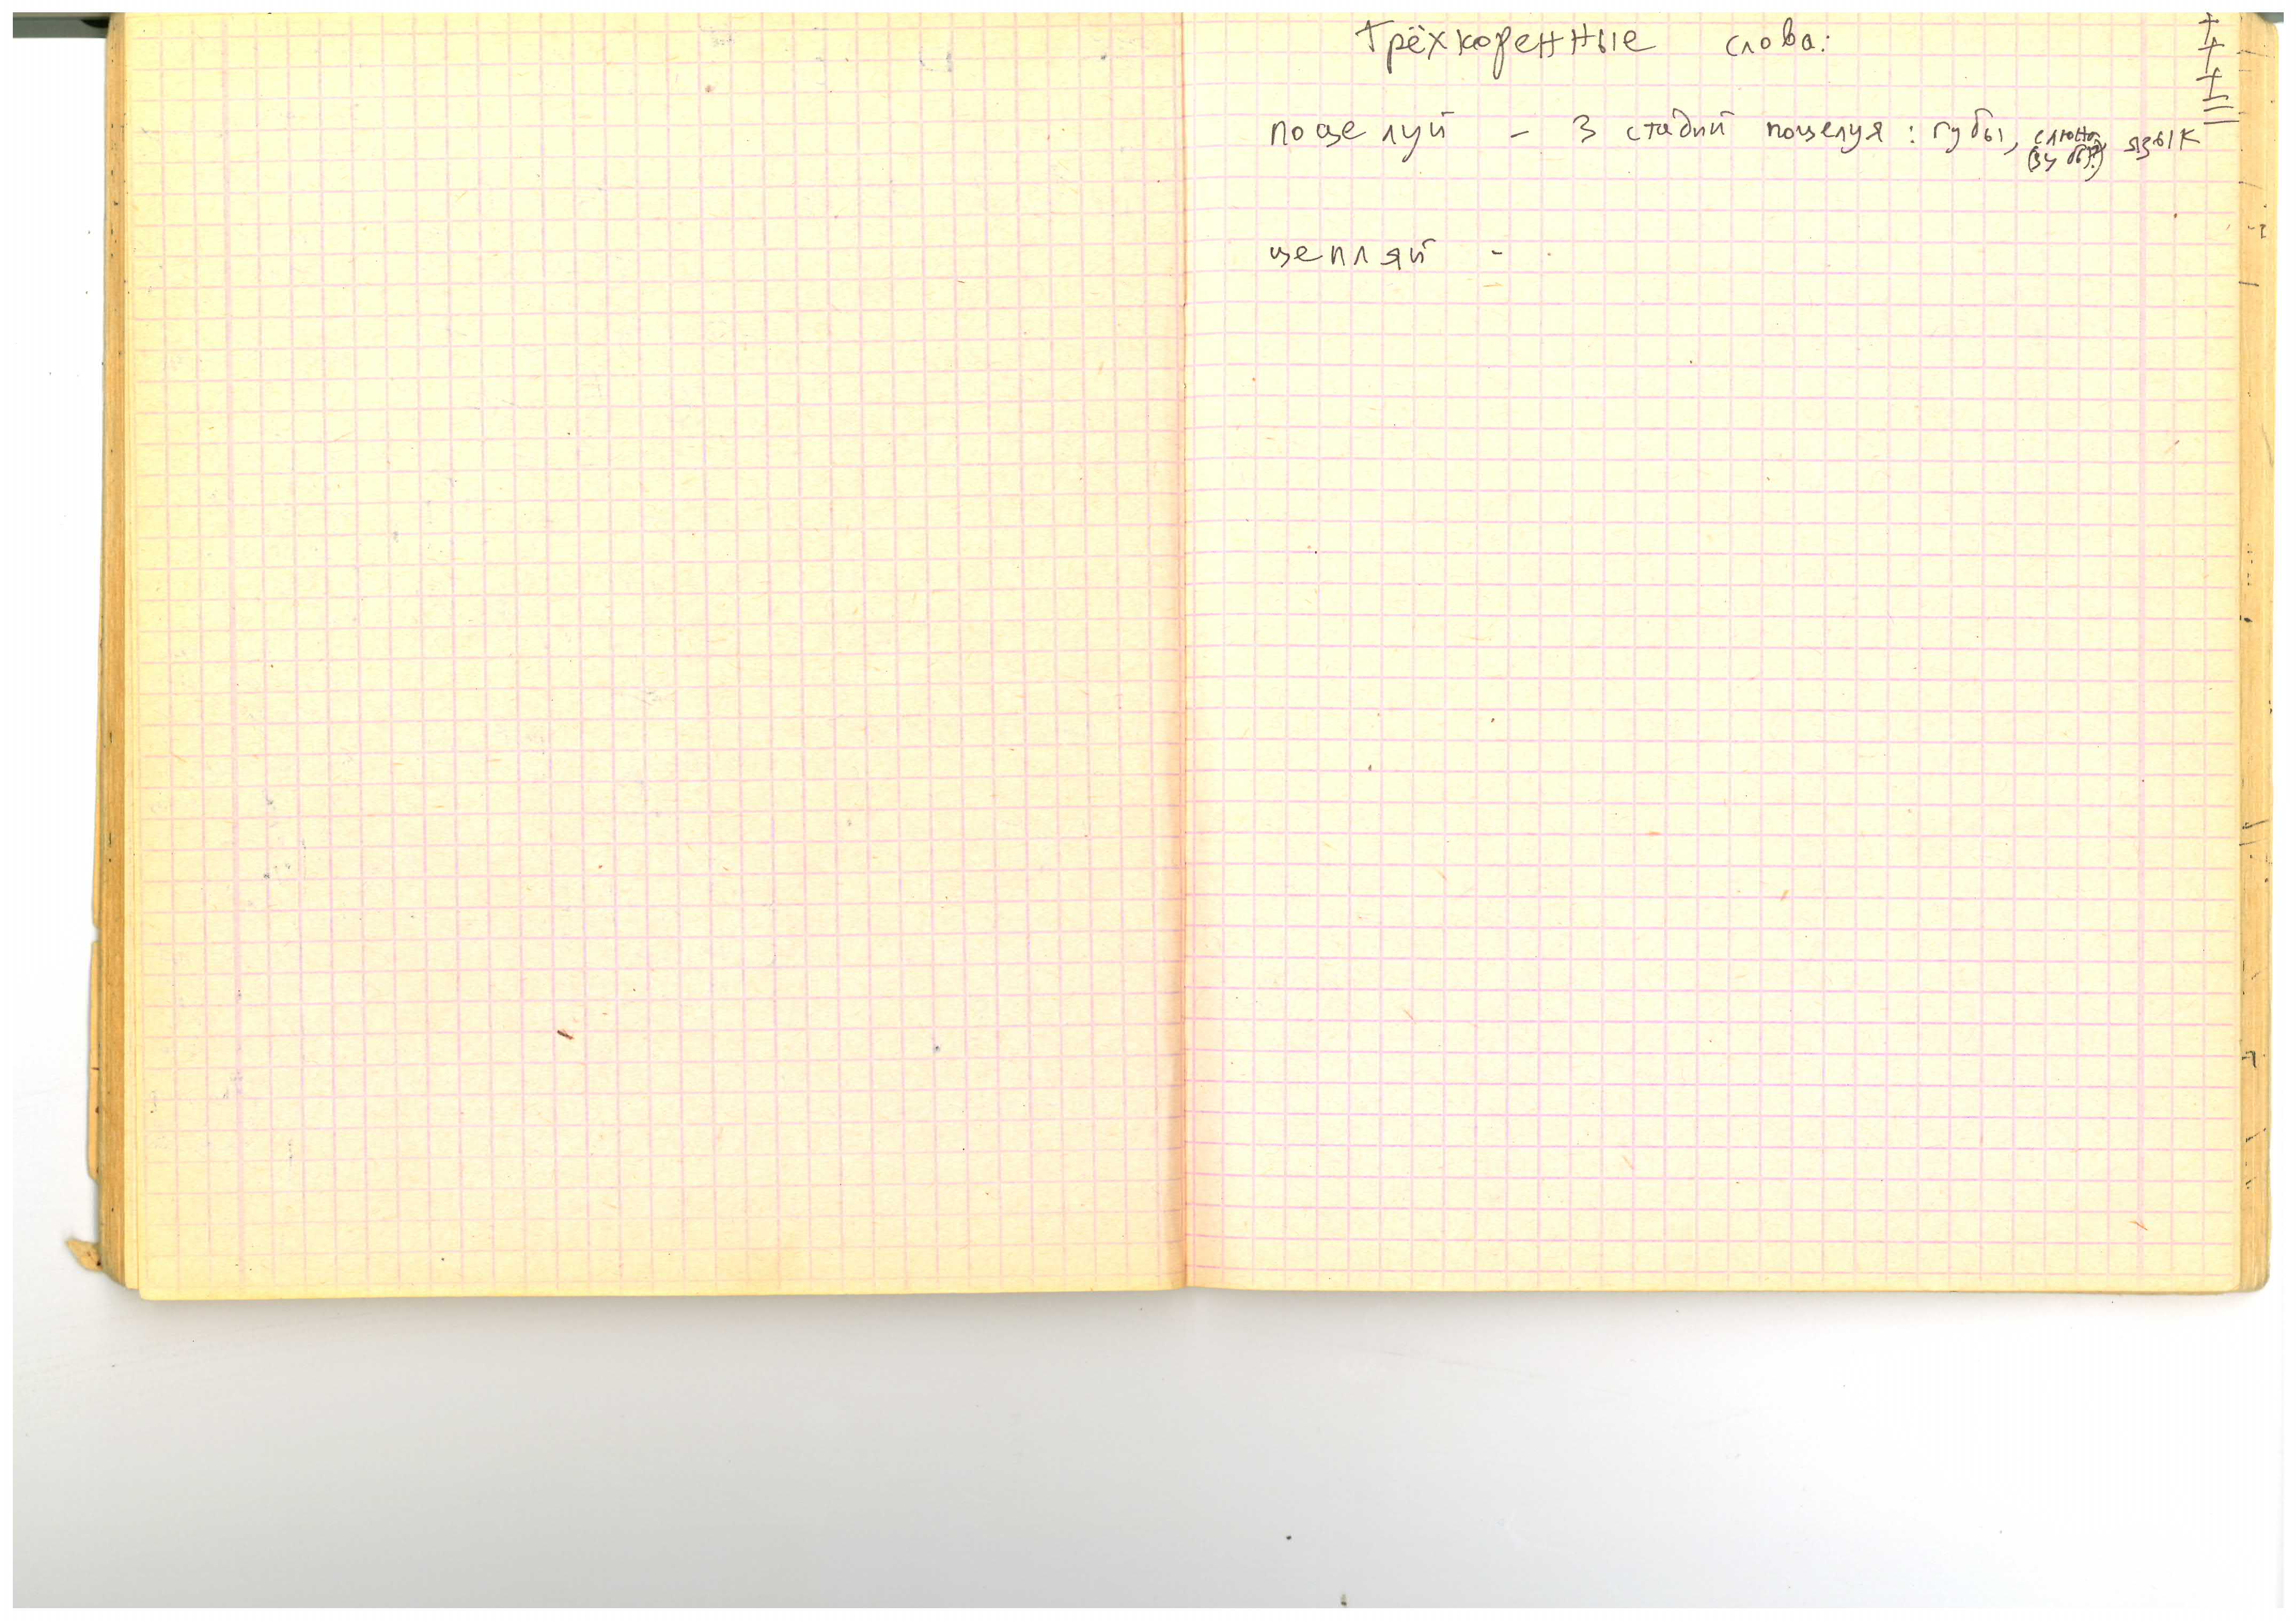 Трёхкоренные слова:
поцелуй - 3 стадии поцелуя: губы, слюна, язык
(зубы?)
цепляй -